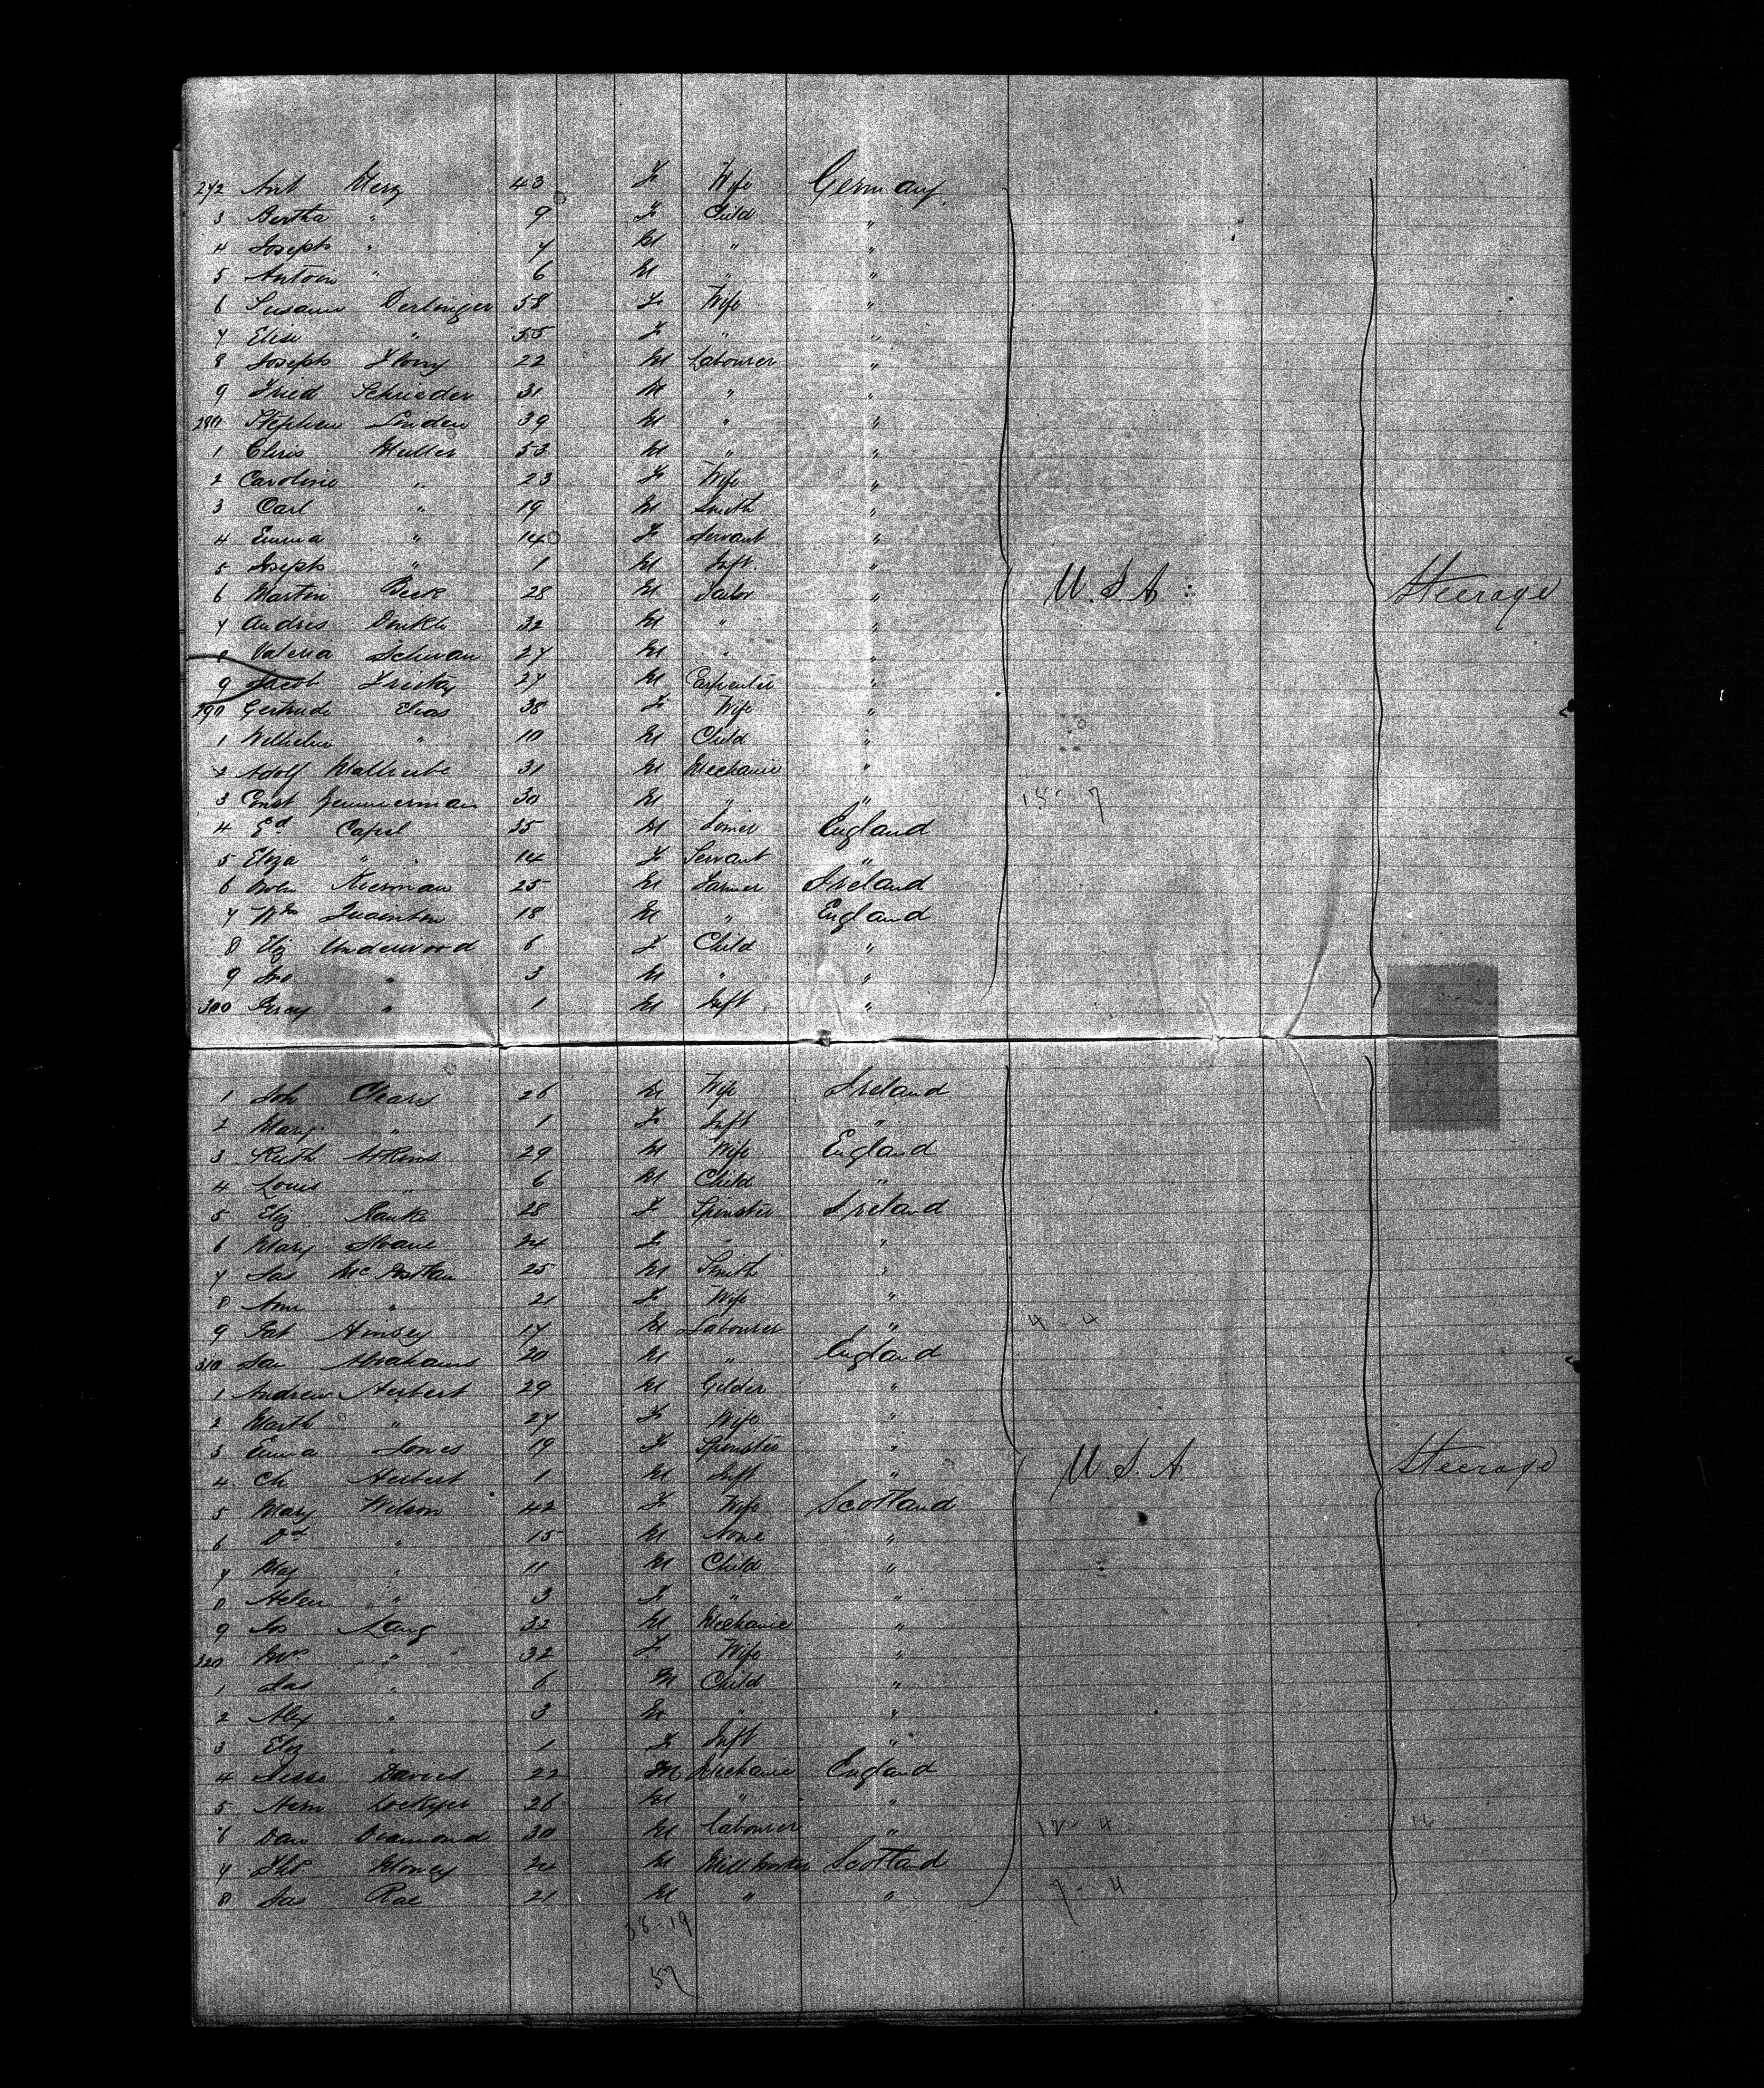 272 Ant Merz 43 F Wife Germany
3 Bertha " 9 F Child "
4 Joseph " 7 M " "
5 Antoin " 6 M " "
6 Susann Derbinger 58 F Wife "
7 Elise " 55 F " "
8 Joseph Flory 22 M Labourer "
9 Fried Schrieder 31 M " "
280 Stephen Linden 39 M " "
1 Chris Muller 53 M " "
2 Caroline " 23 F Wife "
3 Carl " 19 M Smith "
4 Emma " 14 F Servant "
5 Joseph " 1 M Inft. "
6 Martin Beck 28 M Tailor " U.S.A Steerage
7 Andres Dinkle 32 M " "
8 Valeria Schwan 27 M " "
9 Jacob 27 M Carpenter "
290 Gertrude Elias 38 F Wife "
1 Wilhelm " 10 M Child "
2 Adolf 31 M Mechanic "
3 Const Zemmerman 30 M " " 15-7
4 Ed Capel 35 M Joiner England
5 Eliza " 14 F Servant "
6 John Kiernan 25 M Farmer Ireland
7 Wm Quainton 18 M " England
8 Eliz Underwood 6 F Child "
9 Jno " 3 M " "
300 Percy " 1 M Inft "
1 Joh Cleary 26 M Wife Ireland
2 Mary " 1 F Inft "
3 Ruth Atkins 29 M Wife England
4 Louis " 6 M Child "
5 Eliz 28 F Spinster Ireland
6 Mary Sloane 24 F " "
7 Jas 25 M Smith "
8 Ann " 21 F Wife "
9 Pat 17 M Labourer " 4-4
310 Abrahams 20 M " England
1 Andrew Herbert 29 M Gilder "
2 Marth " 27 F Wife "
3 Emma Jones 19 F Spinster "
4 Ch Herbert 1 M Inft " U.S.A Steerage
5 Mary Wilson 42 F Wife Scotland
6 Dd " 15 M None "
7 " 11 M Child "
8 Helen " 3 F " "
9 Jos Lang 32 M Mechanic "
320 Mrs " 32 F Wife "
1 Jas " 6 M Child "
2 Alex " 3 M " "
3 Eliz " 1 F Inft "
4 Jesse Davies 22 M Mechanic England
5 Hern Lockyer 26 M " "
6 Dan Diamond 30 M Labourer " 12-4 16
7 Thos 24 M Mill worker Scotland
8 Jas Rae 21 M " " 7-4
38-19
57